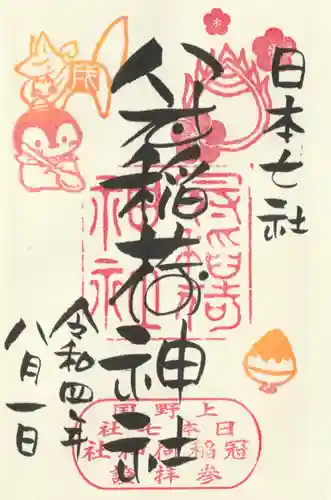 日本七社
稲荷神社
令和四年
八月一日
上野国
日本七社
冠稲荷神社
参拝證